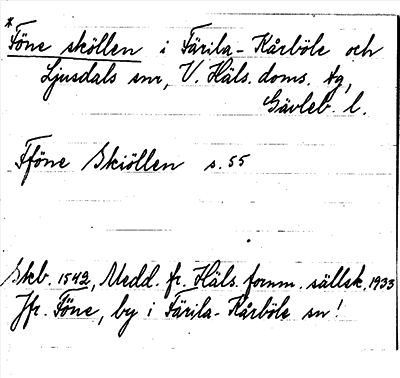 *
Föne sköllen i Färila-Kårböle och
Ljusdals snr, V. Häls. doms. tg,
Gävleb. l.
Fföne Skiöllen s. 55
Skb. 1542, Medd. fr. Häls. fornm. sällsk. 1933
Jfr. Föne, by i Färila-Kårböle sn!